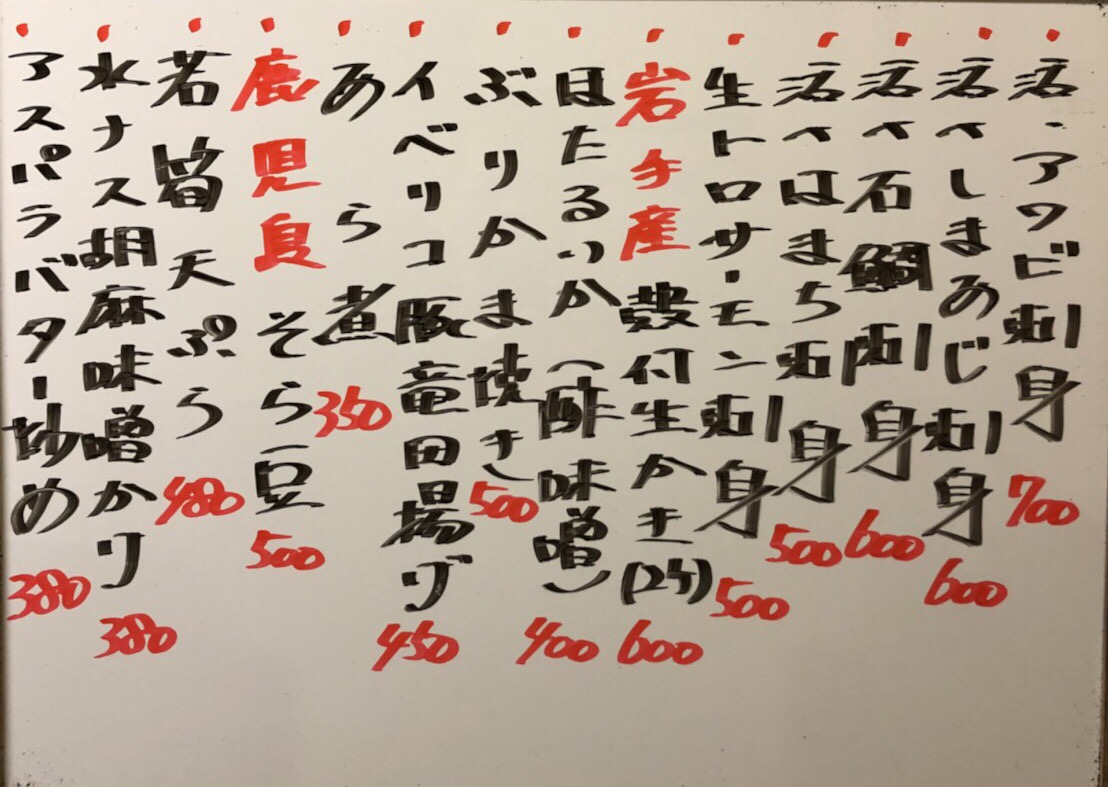 活・アワビ刺身 700
活〆しまあじ刺身 600
活〆石鯛刺身 600
活〆はまち刺身 500
生トロサーモン刺身 500
岩手産殻付生かき(2ヶ) 600
ほたるいか(酢味噌) 400
ぶりかま焼き 500
イベリコ豚竜田揚げ 450
あら煮 350
鹿児島そら豆 500
若筍天ぷら 480
水ナス胡麻味噌かけ 380
アスパラバター炒め 380